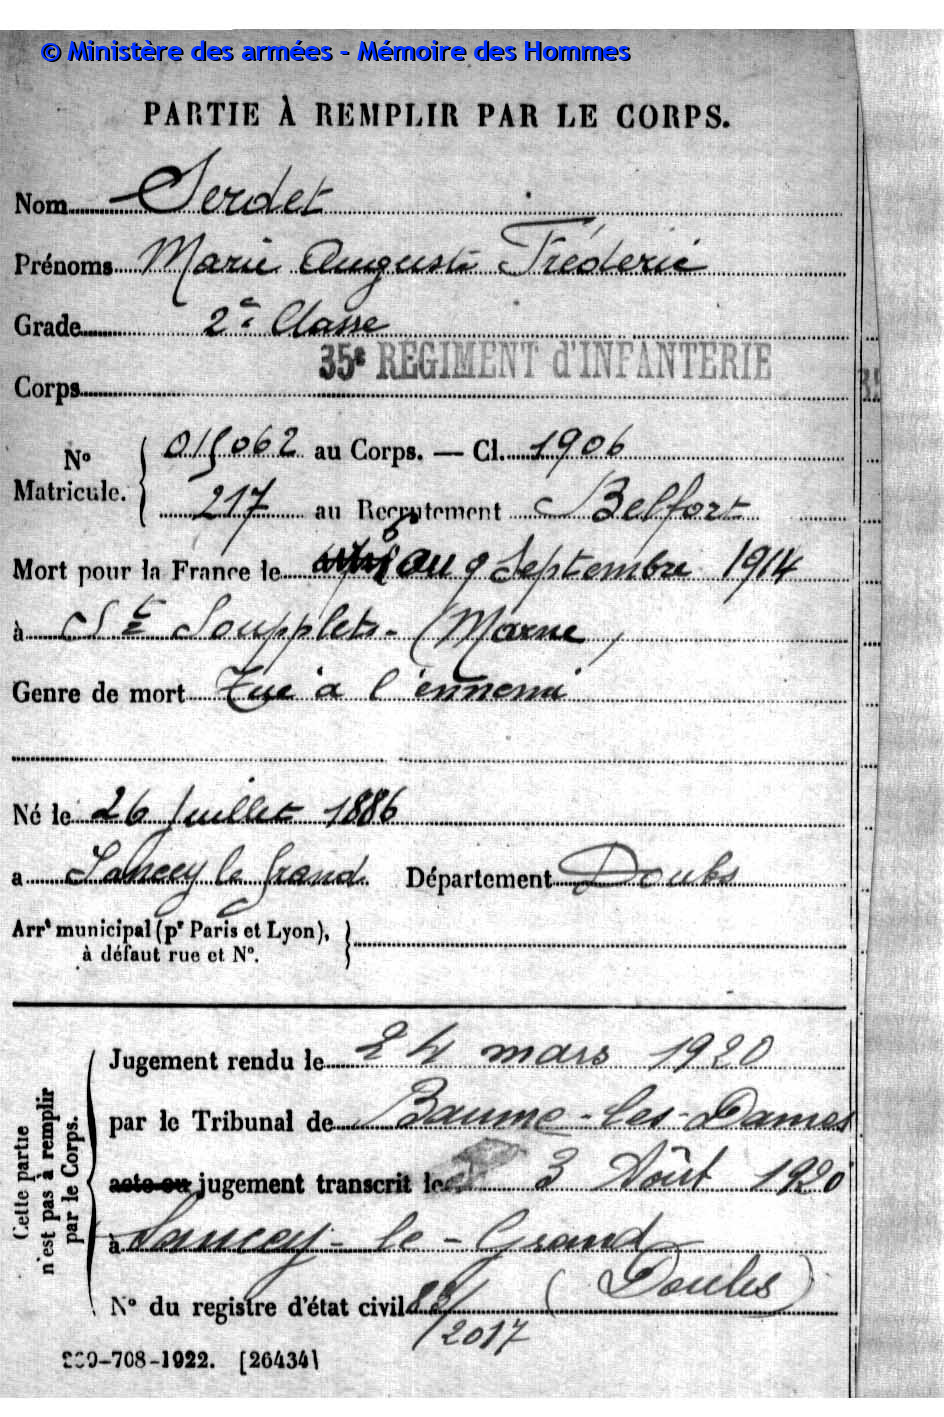 © Ministère des armées - Mémoire des Hommes
PARTIE À REMPLIR PAR LE CORPS.
Nom Serdet
Prénoms Marie Auguste Fréderic
Grade 2e Classe
Corps 35e RÉGIMENT d'INFANTERIE
No Matricule. 015062 au Corps. — Cl. 1906
217 au Recrutement Belfort
Mort pour la France le 6 au 9 Septembre 1914
à St Soupplets - (Marne)
Genre de mort Tué à l'ennemi
Né le 26 Juillet 1886
a Sancey le Grand Département Doubs
Arrt municipal (pr Paris et Lyon),
à défaut rue et No.
Cette partie
n'est pas à remplir
par le Corps.
Jugement rendu le 24 mars 1920
par le Tribunal de Baume-les-Dames
acte ou jugement transcrit le 3 Août 1920
à Sancey-le-Grand
(Doubs)
No du registre d'état civil
/2017
-708-1922. [26434]